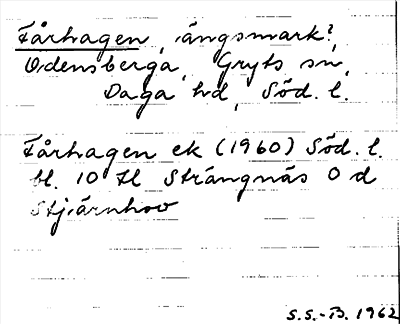 Fårhagen, ängsmark?,
Odensberga, Gryts sn,
Daga hd, Söd. l.
Fårhagen ek (1960) Söd. l.
bl. 10 H Strängnäs O d
Stjärnhov
S.S.-B. 1962